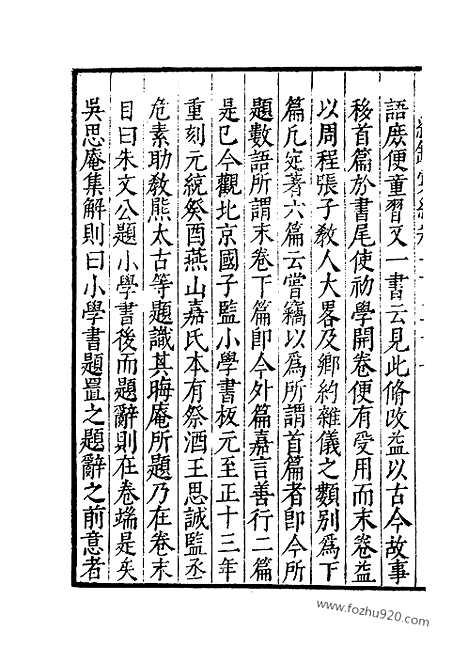 語庶便童習又一書云見此脩改益以古今故事
移首篇於書尾使初學開卷便有受用而末卷益
以周程張子教人大畧及鄉約雜儀之類別爲下
篇凡定著六篇云嘗竊以爲所謂首篇者即今所
題數語所謂末卷下篇即今外篇嘉言善行二篇
是已今觀北京國子監小學書板元至正十三年
重刻元統癸酉燕山嘉氏本有祭酒王思誠監丞
危素助教熊太古等題識其晦庵所題乃在卷末
目曰朱文公題小學書後而題辭則在卷端是矣
吳思庵集解則曰小學書題置之題辭之前意者
www.fozhu920.com